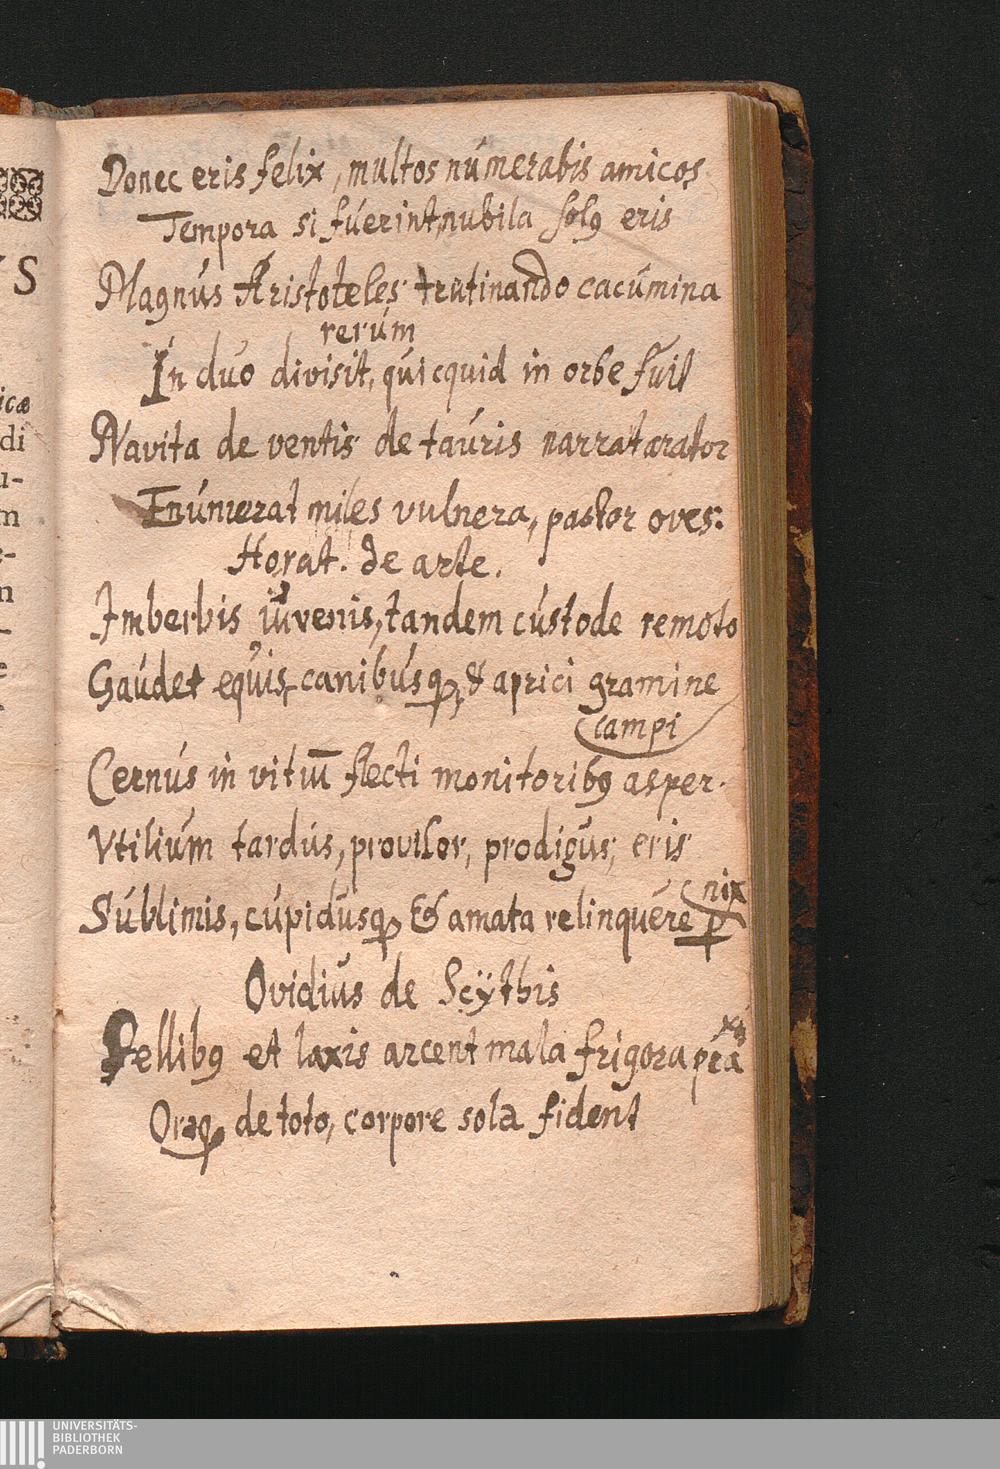 S
icæ
di
u-
m
e-
n
-
e
Donec eris felix, multos númerabis amicos.
Tempora si fúerint, nubila solꝰ eris
Magnús Aristoteles trutinando cacúmina
rerúm
In duo divisit, quicquid in orbe fuit
Navita de ventis de taúris narrat arator
Enúmerat miles vulnera, pastor oves:
Horat. de arte.
Imberbis iúvenis, tandem cústode remoto
Gaúdet equis, canibúsqꝫ, & aprici gramine
campi
Cernús in vitiū flecti monitoribꝰ asper.
Vtiliúm tardús, provisor, prodigús, eris
nix
Súblimis, cúpidúsqꝫ & amata relinquére p
Ovidiús de Scÿthis
Pellibꝰ et laxis arcent mala frigora
Oraqꝫ de toto, corpore sola fident
UNIVERSITÄTS-
BIBLIOTHEK
PADERBORN